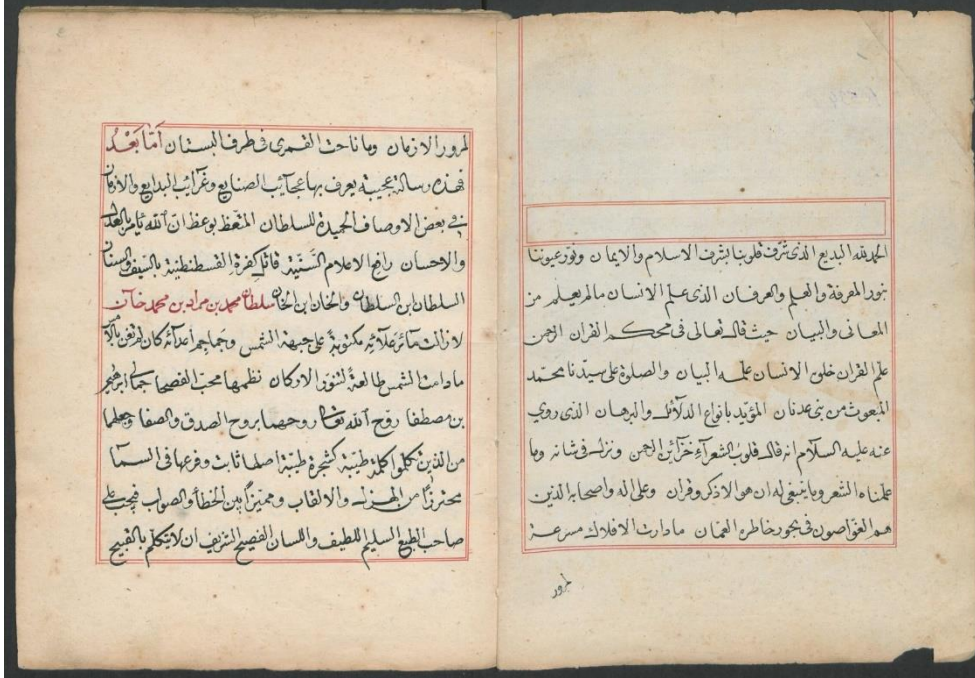 الحمد لله البديع الذى شرف قلوبنا بشرف الاسلام والايمان ونور عيوننا
بنور المعرفة والعلم والعرفان الذى علم الانسان مالم يعلم من
المعانى والبيان حيث قال تعالى فى محكم القران الرحمن
علم القران خلق الانسان علمه البيان والصلوة على سيدنا محمد
المبعوث من بنى عدنان المؤيد بانواع الدلائل والبرهان الذى روي
عنه عليه السلام انه قال قلوب الشعرآء خزآئن الرحمن ونزل فى شانه وما
علمناه الشعر وما ينبغى له ان هو الا ذكر وقران وعلى اله واصحابه الذين
هم الغواصون فى بحور خاطره العمان مادارت الافلاك مسرعة
لمرور
لمرور الازمان وما ناحت القمرى فى طرف البستان اَمَّا بَعْدُ
فهذه رسالة عجيبة يعرف بها عجآيب الصنايع وغرآئب البدايع والاذعان
فى بعض الاوصاف الحميدة للسلطان المتعظ بوعظ ان الله يامر بالعدل
والاحسان رافع الاعلام السنية قاتل كفرة القسطنطنية بالسيف والسنان
السلطان ابن السلطان والخان ابن الخان سلطان محمد بن مراد بن محمد خان
لازالت مآثر علآئه مكتوبة على جبهة الشمس وجماجم اعدآئه كان لم تغن بالامس
مادامت الشمس طالعة لتنور الاركان نظمها محب الفصحا جمالى ابرهيم
بن مصطفا روح الله تعالى روحهما بروح الصدق والصفا وجعلهما
من الذين كلموا كلمة طيبة كشجرة طيبة اصلها ثابت وفرعها فى السما
محترزًا من الهزل والالقاب ومميزًا بين الخطأ والصواب فيجب على
صاحب الطبع السليم اللطيف واللسان الفصيح الشريف ان لا يتكلم بالقبيح